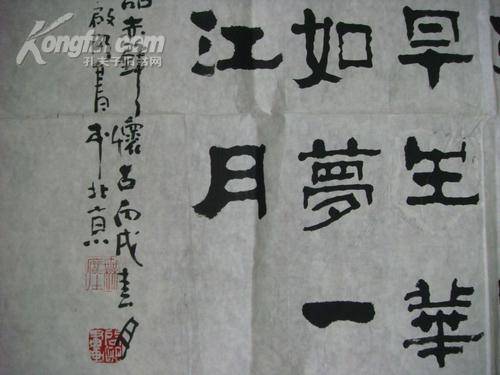 早生華
如夢一
江月
赤壁懷古丙戌春月
書於北京
Kongfz.com
孔夫子旧书网